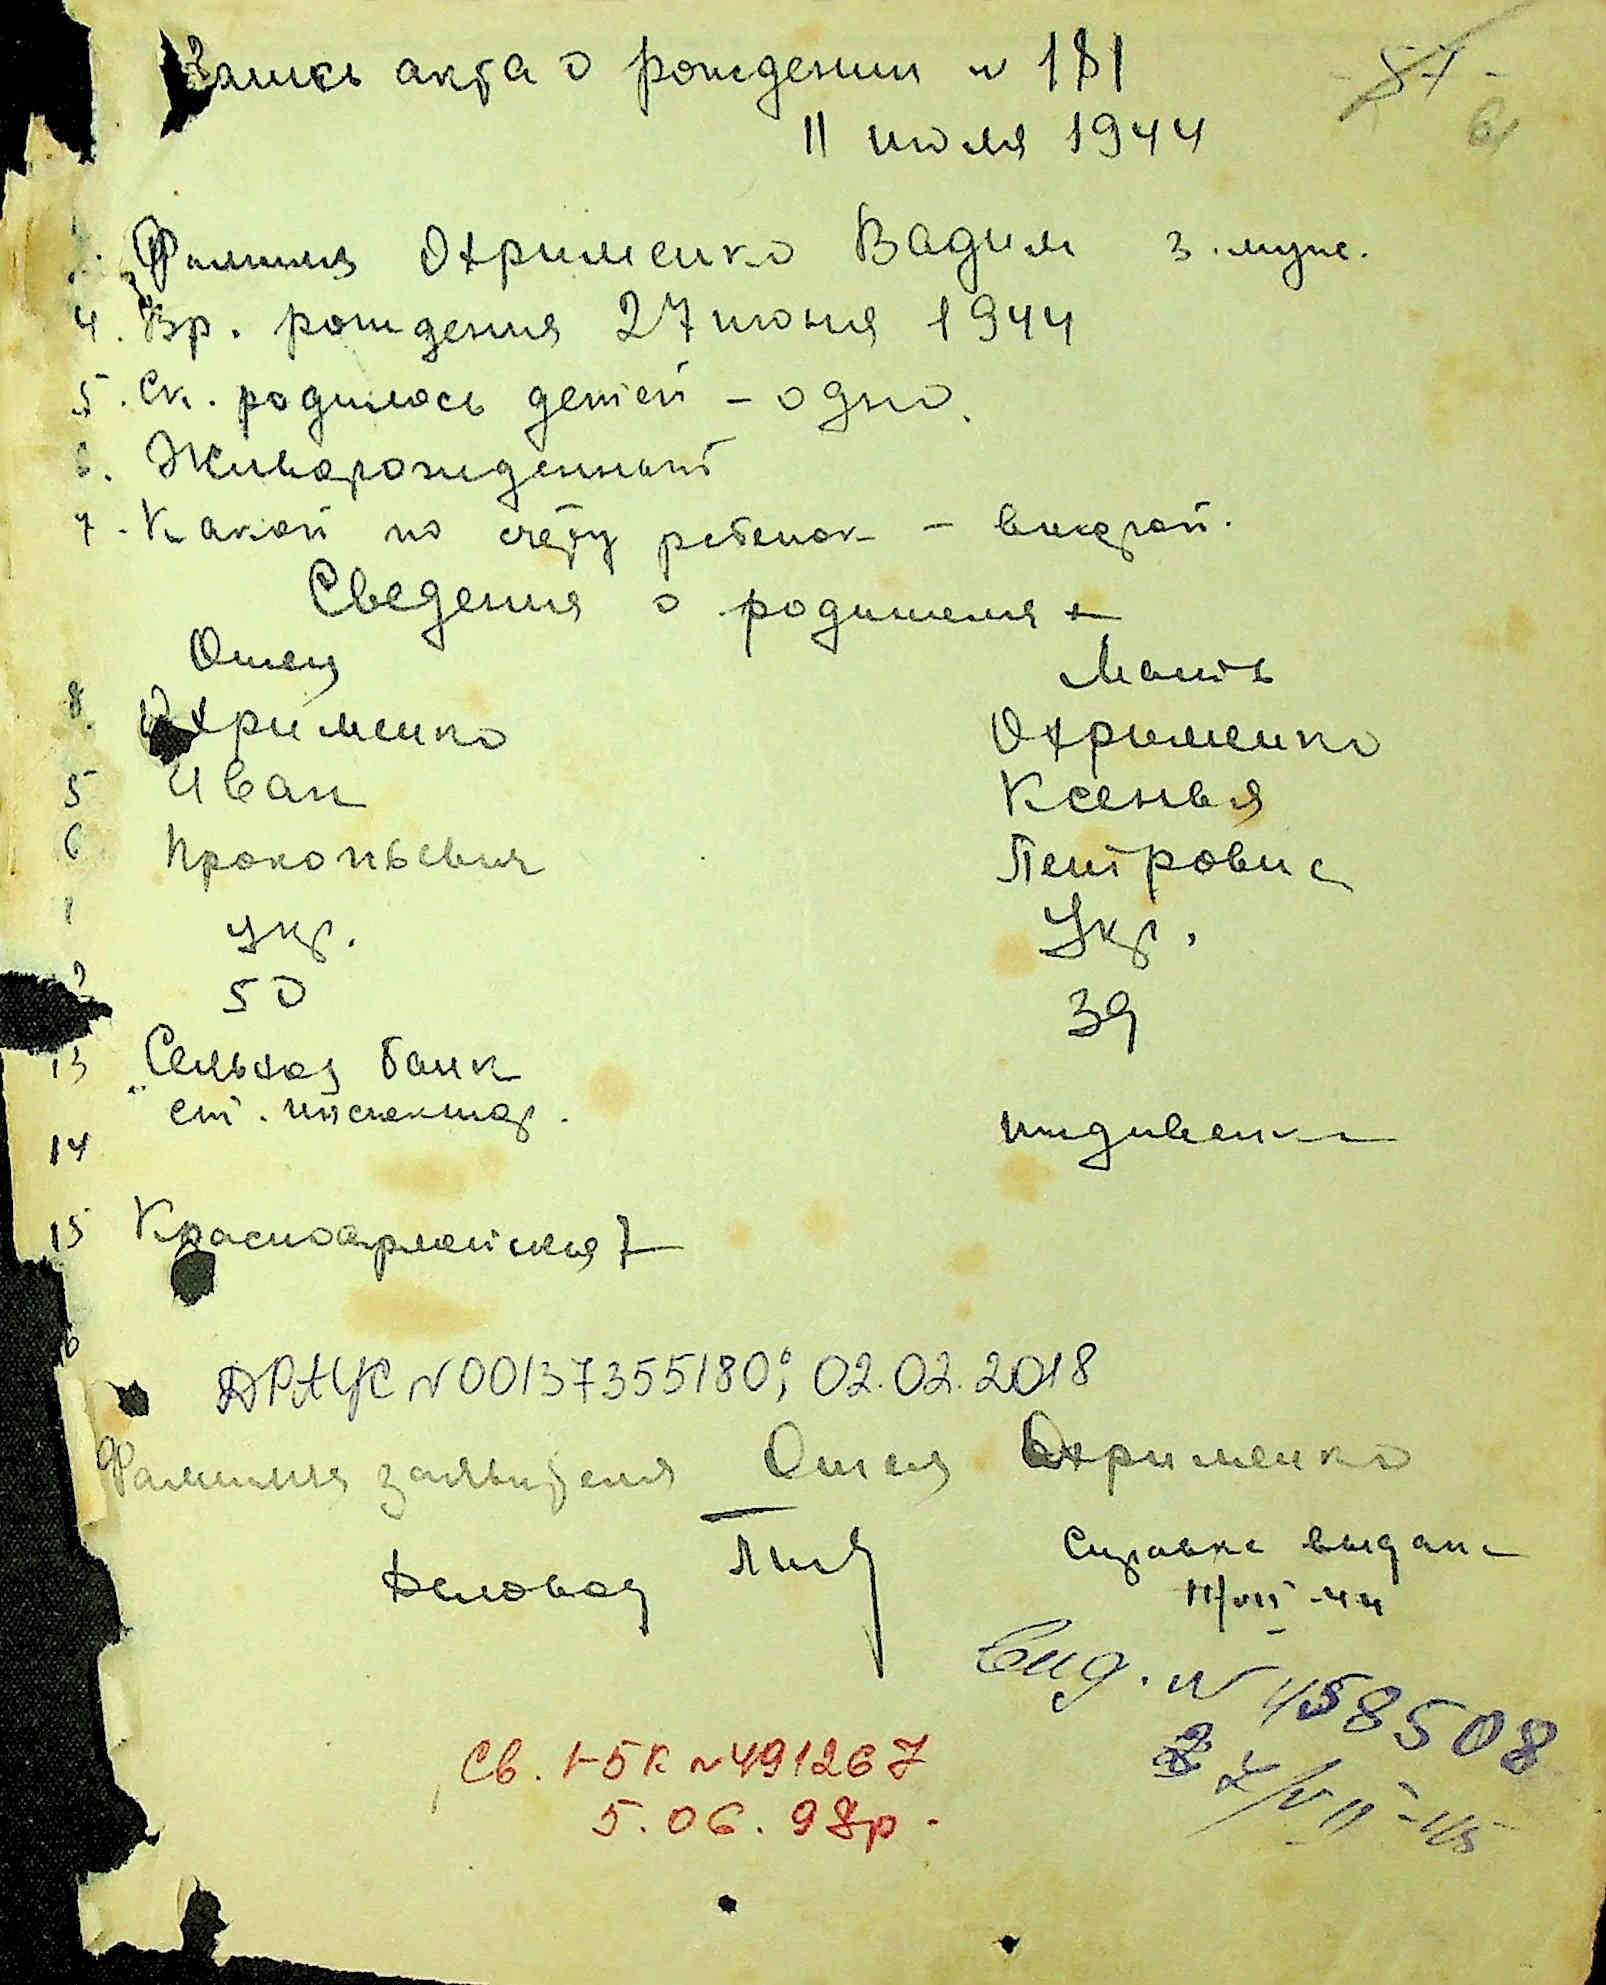 Запись акта о рождении № 181
11 июля 1944
- 87 -
Фамилия Охрименко Вадим 3. муж.
4. Вр. рождения 27 июня 1944
5. Ск. родилось детей - одно.
6. Живорожденный
7. Какой по счёту ребенок - второй.
Сведения о родителях
Отец Мать
8. Охрименко Охрименко
Иван Ксенья
Прокопьевич Петровна
Укр. Укр.
50 39
13 Сельхоз банк
ст. инспектор. иждивенка
14
15 Красноармейская 7
ДРАЦС №00137355180; 02.02.2018
Фамилия заявителя Отец Охрименко
Деловод
Справка выдана
11/VII-44
Вид. № 458508
27/VII-45
Св. 1-БК №491267
5.06.98р.